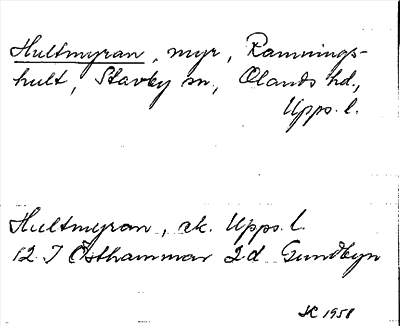 Hultmyran, myr, Ramnings-
hult, Stavby sn., Olands hd.,
Upps. l.
Hultmyran, ek. Upps. l.
12 I Östhammar 2d Gundbyn
1958